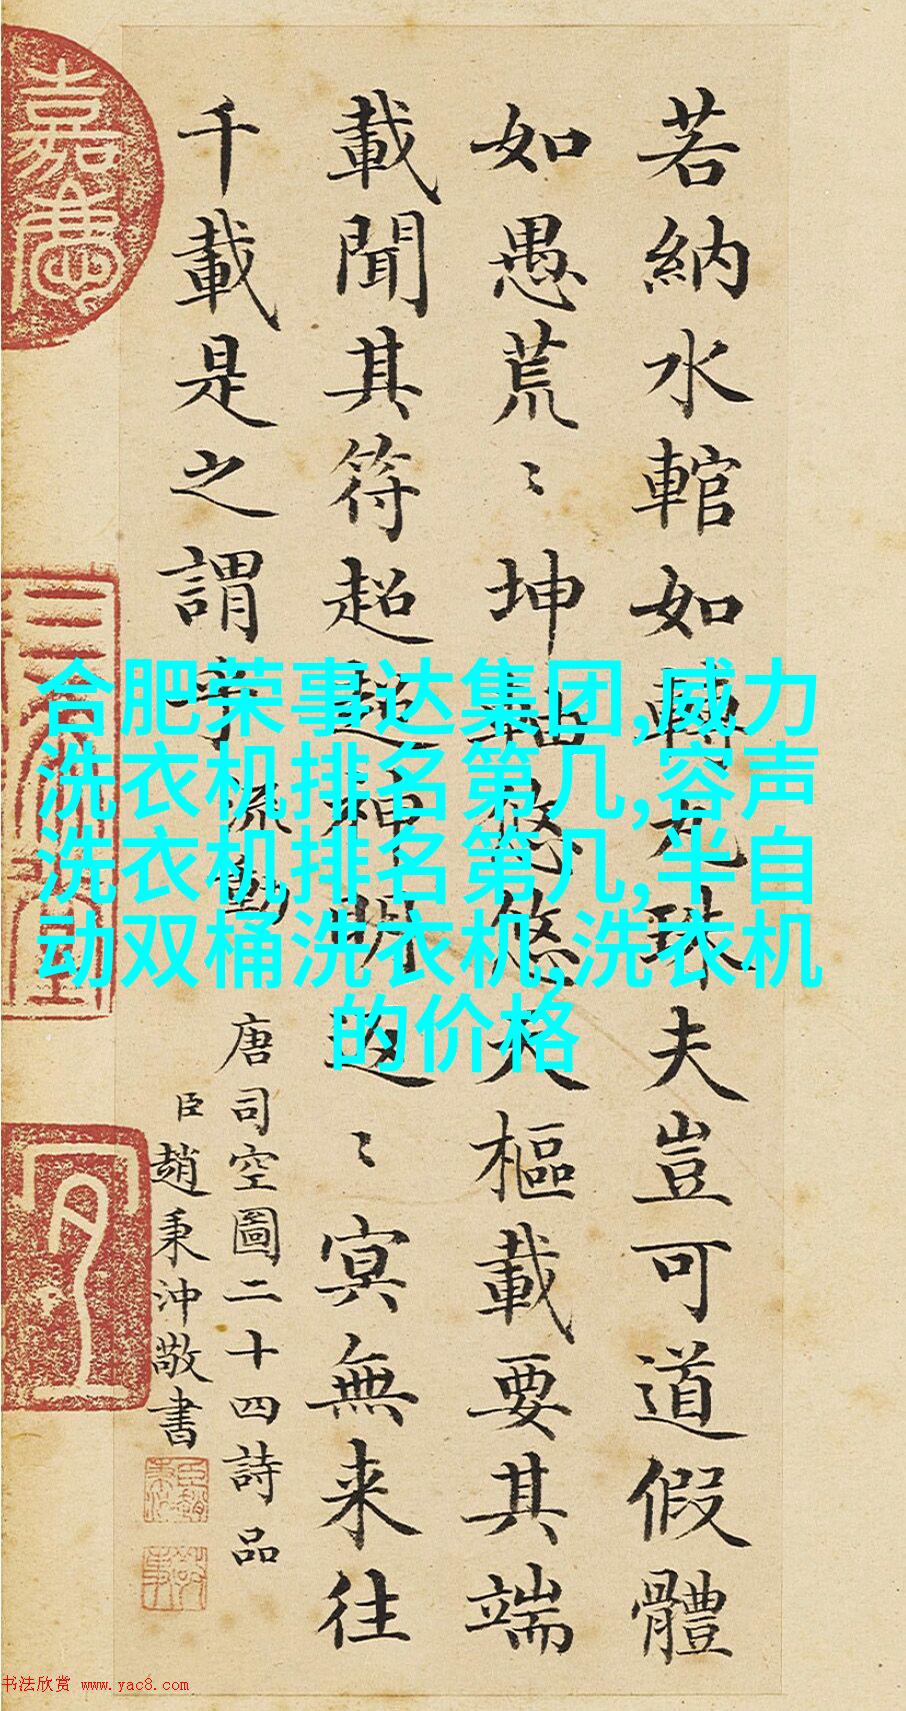 若納水輨如轉丸珠夫豈可道假體
如愚荒〻坤軸悠悠天樞載要其端
載聞其符超超神明返〻冥無来往
千載是之謂乎 流動
唐司空圖二十四詩品
臣趙秉沖敬書
嘉慶
合肥荣事达集团,威力
洗衣机排名第几,容声
洗衣机排名第几,半自
动双桶洗衣机,洗衣机
的价格
书法欣赏 www.yac8.com